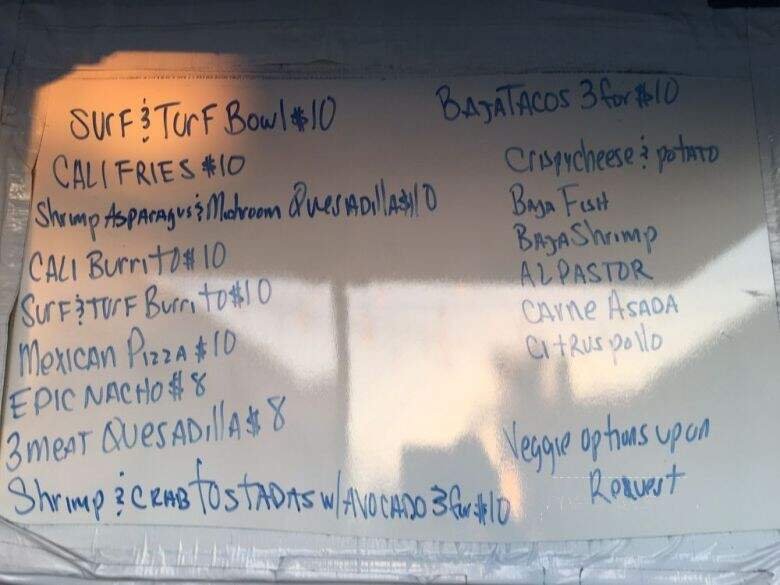 Surf & Turf Bowl $10
CALI FRIES $10
Shrimp Asparagus & Mushroom QuesADillA $10
CALI BurriTO $10
Surf & TUrF BurriTo $10
MexicAN Pizza $10
EPIC NACHO $8
3 meat QuesADillA $8
Shrimp & CRAB TOSTADAS w/ AVOCADO 3 for $10
BAJA TACOS 3 for $10
Crispy cheese & potato
BAJA FisH
BAJA Shrimp
AL PASTOR
CArne ASADA
Citrus pollo
Veggie options upon
Request